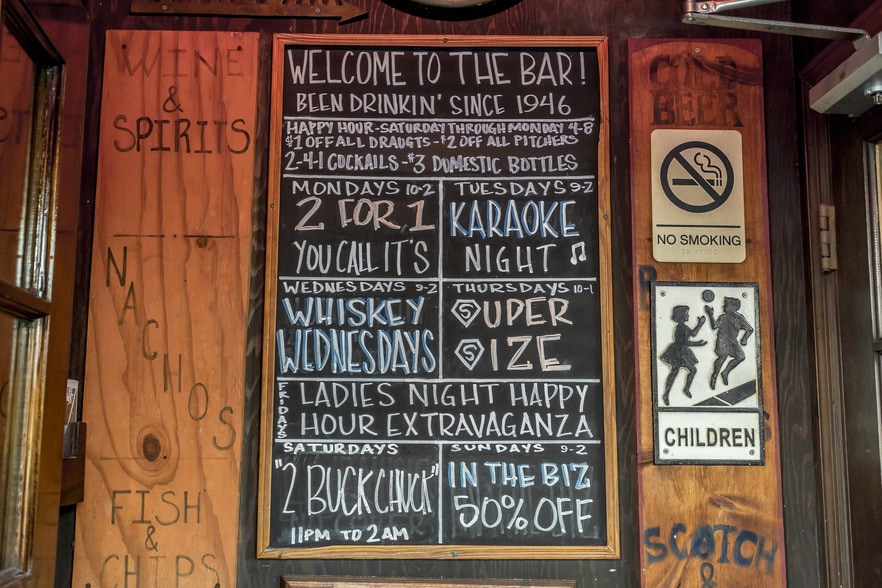 WINE
&
SPIRITS
NACHOS
FISH
&
CHIPS
WELCOME TO THE BAR!
BEEN DRINKIN' SINCE 1946
HAPPY HOUR-SATURDAY THROUGH MONDAY 4-8
$1 OFF ALL DRAUGTS-$2 OFF ALL PITCHERS
2-4-1 COCKAILS-$3 DOMESTIC BOTTLES
MONDAYS 10-2
2 FOR 1
YOU CALL IT'S
TUESDAYS 9-2
KARAOKE
NIGHT
WEDNESDAYS 9-2
WHISKEY
WEDNESDAYS
THURSDAYS 10-1
SUPER
SIZE
FRIDAYS
LADIES NIGHT HAPPY
HOUR EXTRAVAGANZA
SATURDAYS
"2 BUCK CHUCK"
11PM TO 2AM
SUNDAYS 9-2
IN THE BIZ
50% OFF
COLD
BEER
NO SMOKING
CHILDREN
SCOTCH
&